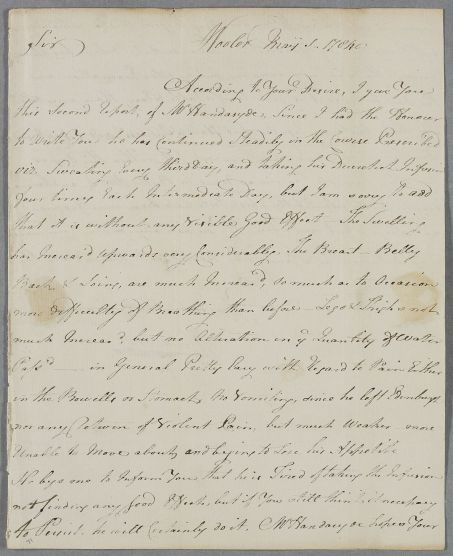 Sir
Wooler May 5. 1784
According to Your Desire, I give You
this Second Report, of Mr Handasyde, Since I had the Honour
to Write You he has Continued Steadily in the Course Prescribed
viz. Sweating Every third Day, and taking his Decoction Infusion
four times Each Intermediate Day, but I am sorry to add
that it is without any Visible Good Effect. The Swelling
has Increas'd Upwards very Considerably. The Breast Belly
Back & Loins, are much Increas'd, so much as to Occasion
more difficulty of Breathing than before. Legs & Thighs not
much Increas'd, but no Alteration in ye Quantity of Water
Pass'd in General Pretty Easy with Regard to Pain Either
in the Bowells or Stomach, no Vomiting, since he left Edinburgh
nor any Return of Violent Pain, but much Weaker more
Unable to Move about, and begins to Lose his Appetite
He begs me to Inform You that he is Tired of taking the Infusion
not finding any good Effects, but if You still think it necessary
to Persist he will Certainly do it. Mr Handasyde hopes Your